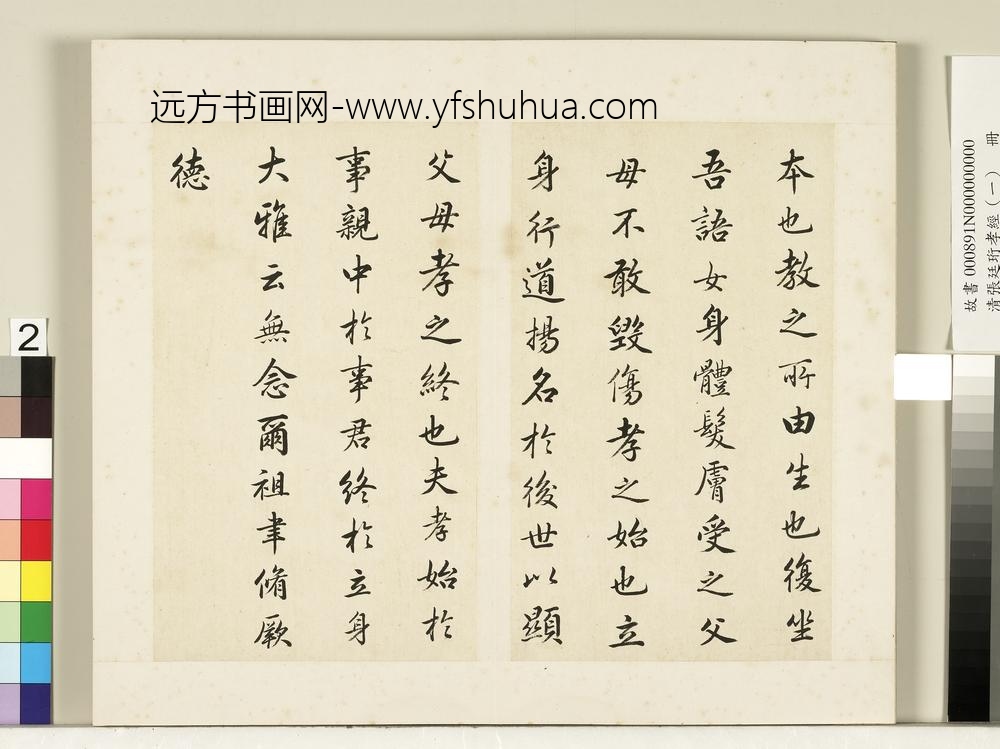 远方书画网-www.yfshuhua.com
本也教之所由生也復坐
吾語女身體髮膚受之父
母不敢毀傷孝之始也立
身行道揚名於後世以顯
父母孝之終也夫孝始於
事親中於事君終於立身
大雅云無念爾祖聿脩厥
德
2
故書000891N000000000
清張廷珩孝經（一） 冊